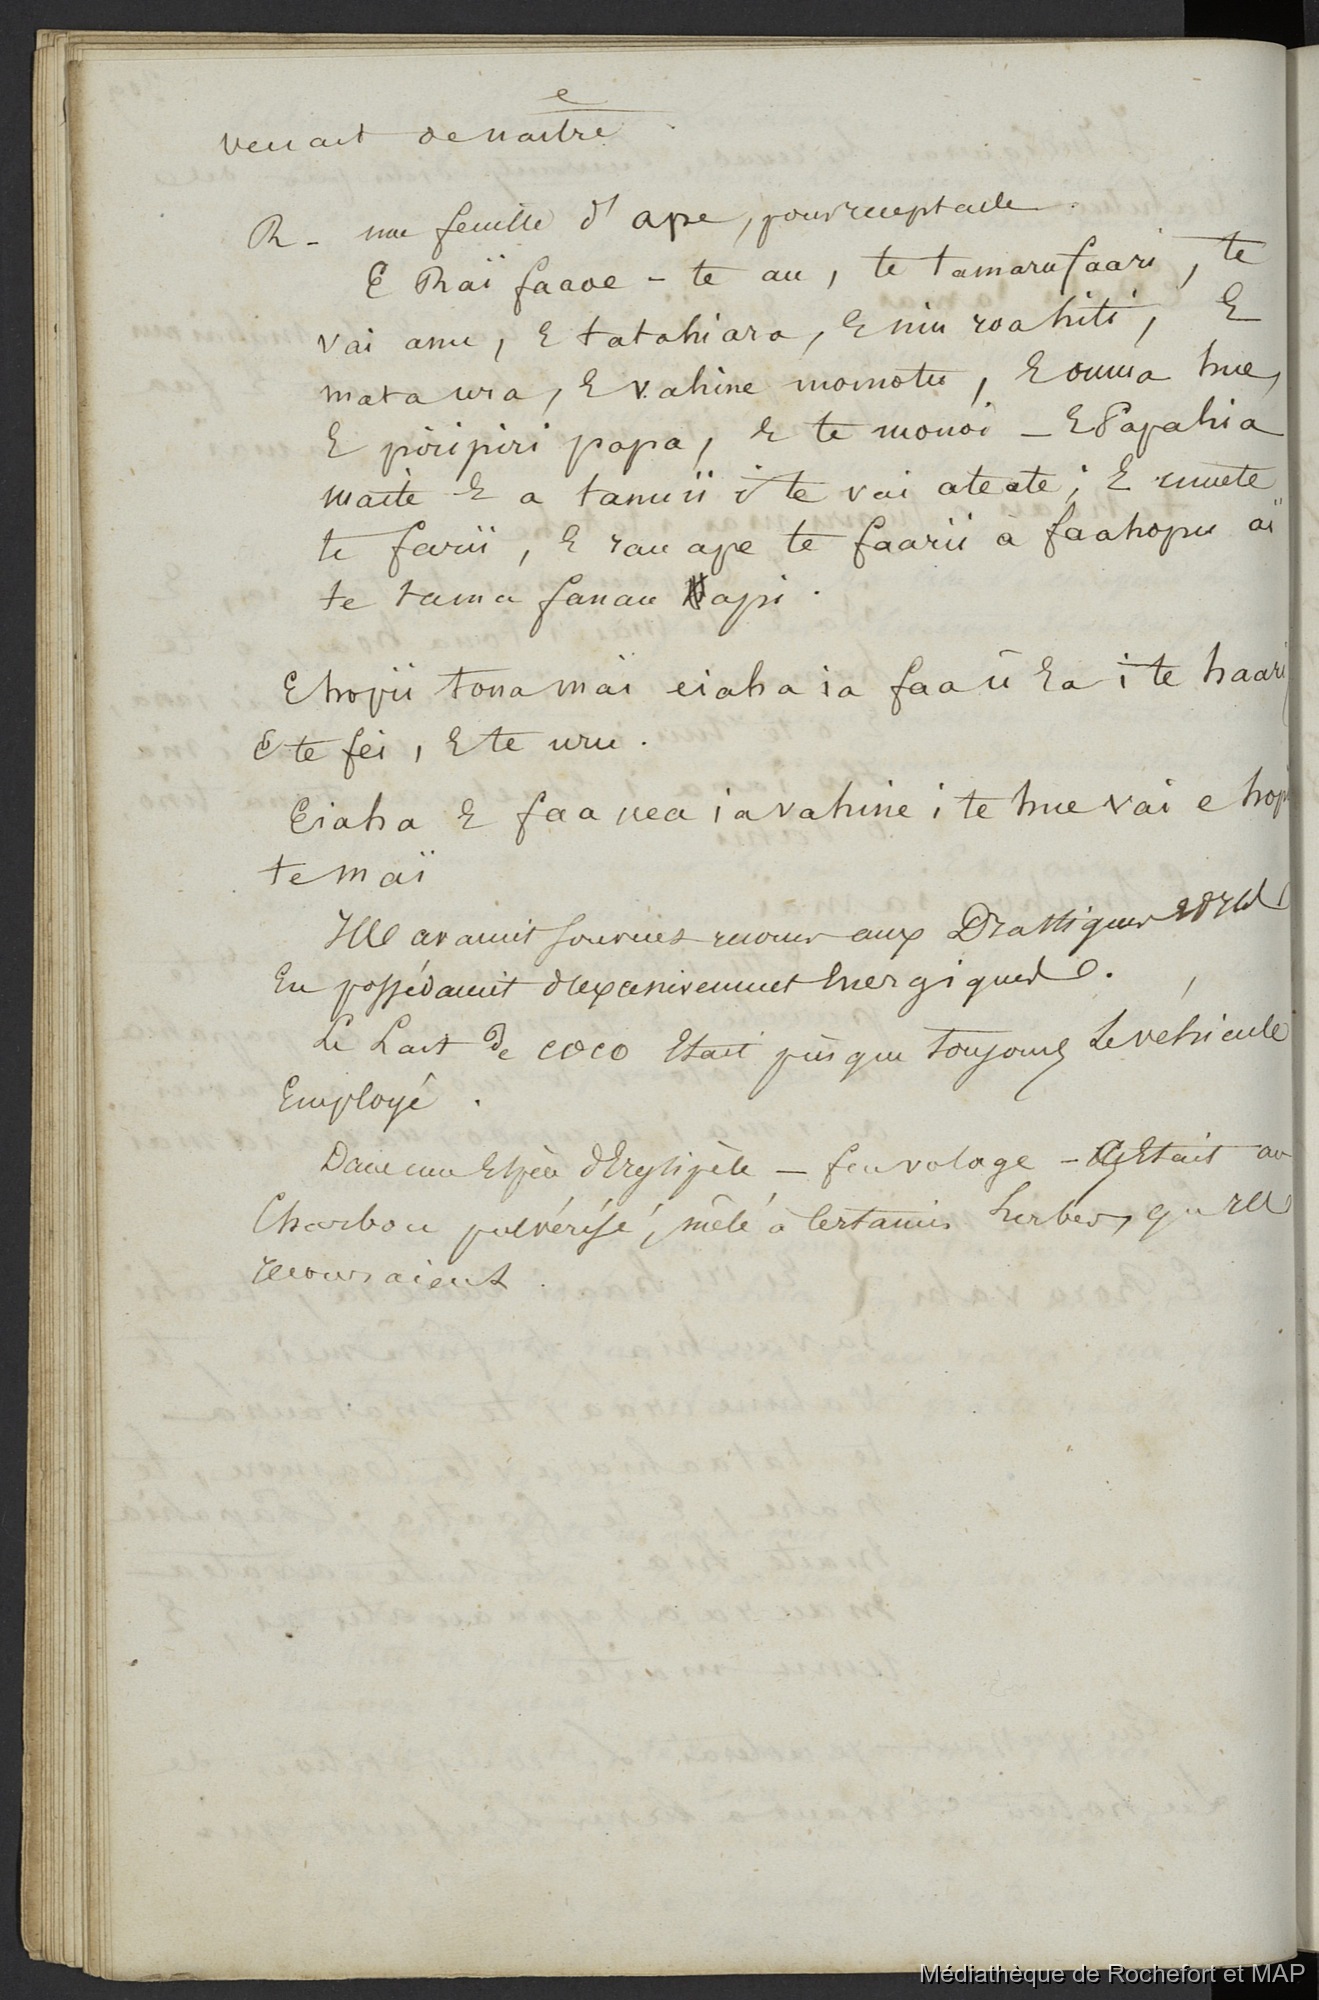 venant de naitre
e
R - une feuille d'ape, pour receptacle.
E Raï faaoe - te au, te tamarufaari, te
vai anu, E tatahiara, E niu roahiti, E
mata ura, E vahine momotu, E ouma hue,
E piripiri papa, E te monoi - E Papahia
maite E a tamuii i te vai ateate; E umete
te farii, E rau ape te faarii à faahopu aï
te tama fanau api.
E hopii tona maï eiaha ia faaû Ea i te haari
E te fei, E te uru.
Eiaha E faanea ia vahine i te hue vai e hopii
te maï
Ils avaient souvent recours aux Drastiques et ils
En possédaient d'excessivement Energiques.
Le Lait de coco Etait presque toujours le véhicule
Employé.
Dans une Espèce d'Erysipèle - feu volage - C'Etait au
Charbon pulvérisé, mêlé à Certaines herbes, qu'ils
recouraient.
Médiathèque de Rochefort et MAP